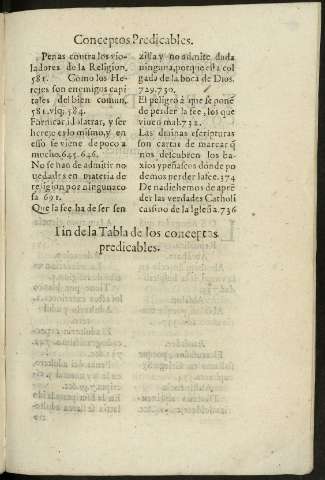 Conceptos Predicables.
Penas contra los vio-
ladores de la Religion.
581. Como los He-
rejes son enemigos capi
tales del bien comun.
581. vsq; 584.
Fornicar idolatrar, y ser
hereje es lo mismo, y en
esso se viene de poco a
mucho. 645. 646.
No se han de admitir no
uedades en materia de
religion por ninguna co
sa 691.
Que la fee ha de ser sen
zilla y no admite duda
ninguna, porque esta col
gada de la boca de Dios.
729. 730.
El peligro à que se pone
de perder la fee, los que
viuen mal. 732.
Las diuinas escripturas
son cartas de marear q̃
nos descubren los ba-
xios y peñascos donde po
demos perder la fee. 374
De nadie hemos de apre
der las verdades Catholi
cas sino de la Iglesia. 736
Fin de la Tabla de los conceptos
predicables.